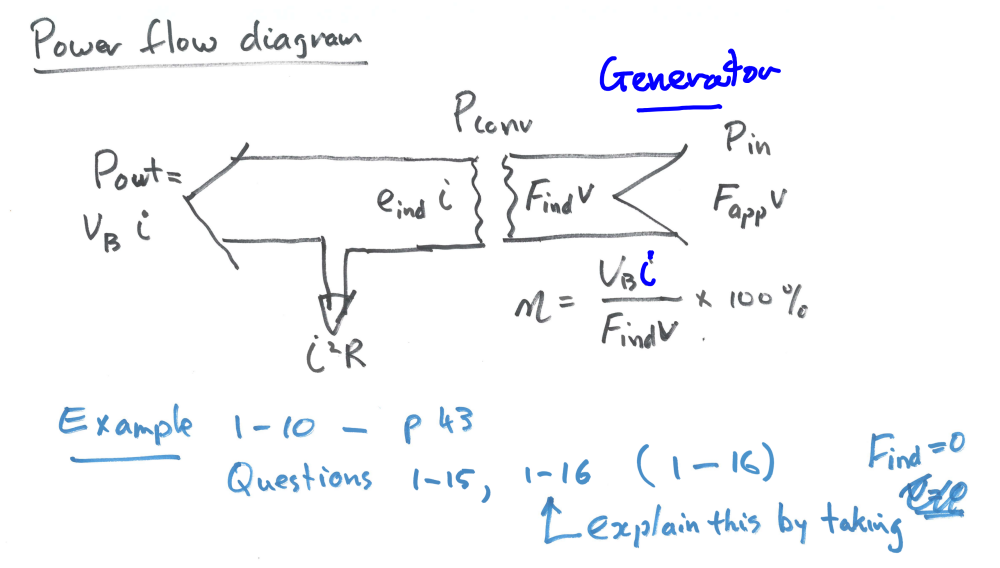 Power flow diagram
Generator
Pconv
Pin
Pout =
eind i
Find v
Fapp v
VB i
η = VB i / Find v × 100 %
i²R
Example 1-10 - p 43
Questions 1-15, 1-16 (1-16)
Find = 0
explain this by taking